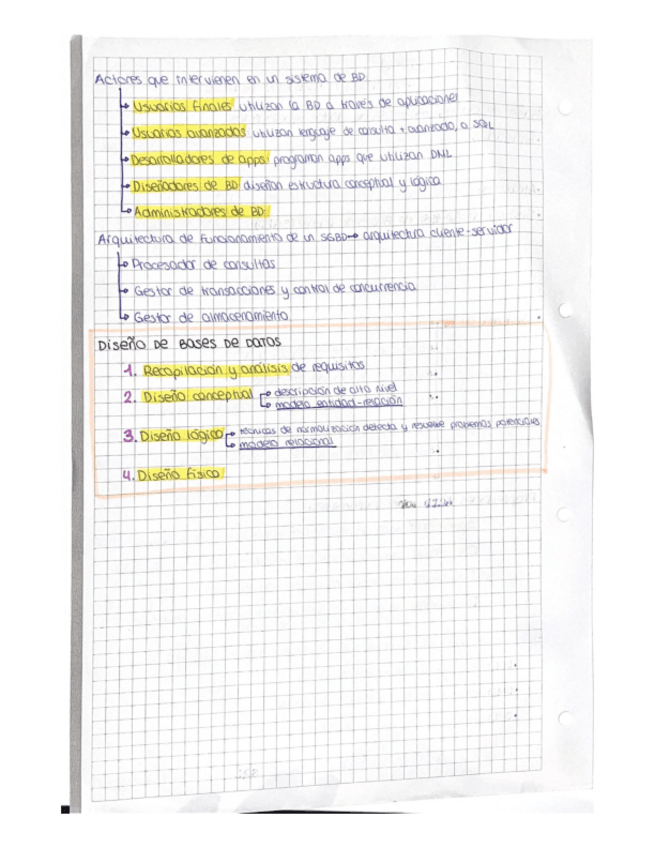 Actores que intervienen en un sistema de BD
Usuarios finales utilizan la BD a través de aplicaciones
Usuarios avanzados utilizan lenguaje de consulta + avanzado, a SQL
Desarrolladores de apps programan apps que utilizan DML
Diseñadores de BD diseñan estructura conceptual y lógica
Administradores de BD.
Arquitectura de funcionamiento de un SGBD → arquitectura cliente-servidor
Procesador de consultas
Gestor de transacciones y control de concurrencia
Gestor de almacenamiento
DISEÑO DE BASES DE DATOS
1. Recopilación y análisis de requisitos
2. Diseño conceptual descripción de alto nivel
modelo entidad-relación
3. Diseño lógico técnicas de normalización detecta y resuelve problemas potenciales
modelo relacional
4. Diseño físico